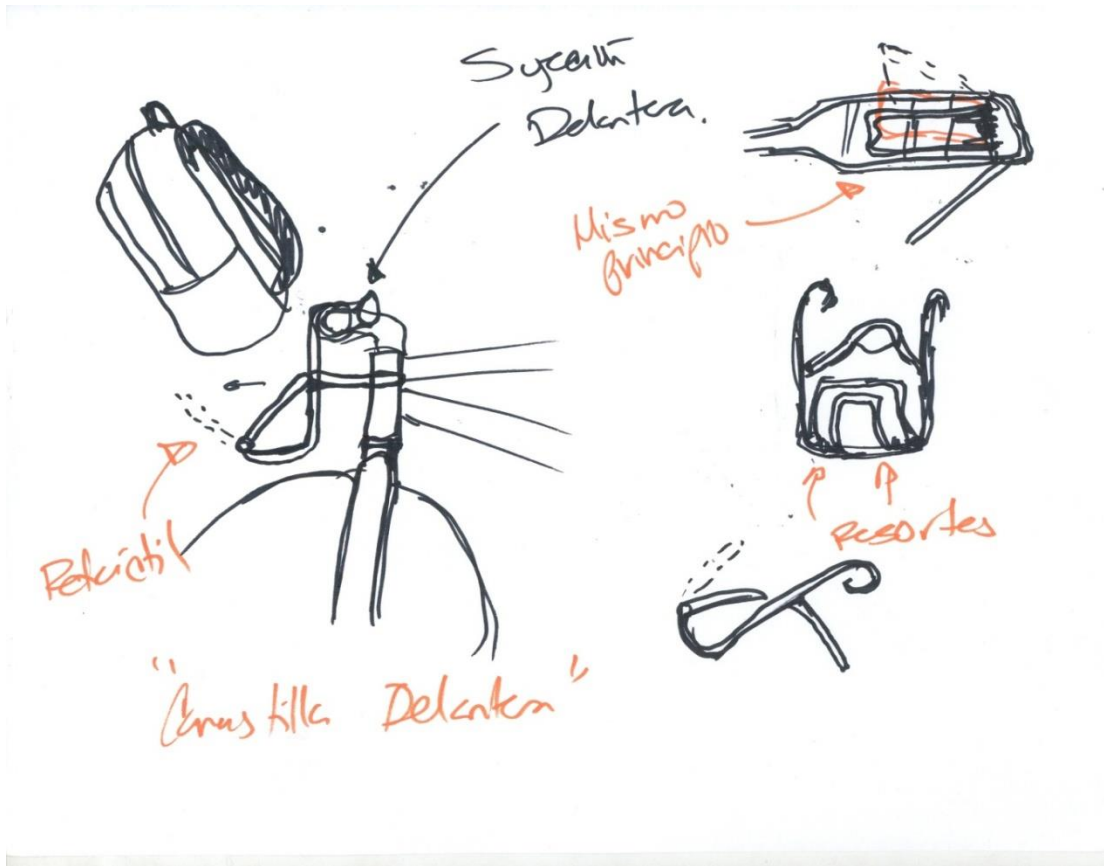 Sujeción
Delantera.
Mismo
principio
Retráctil
resortes
"Canastilla Delantera"